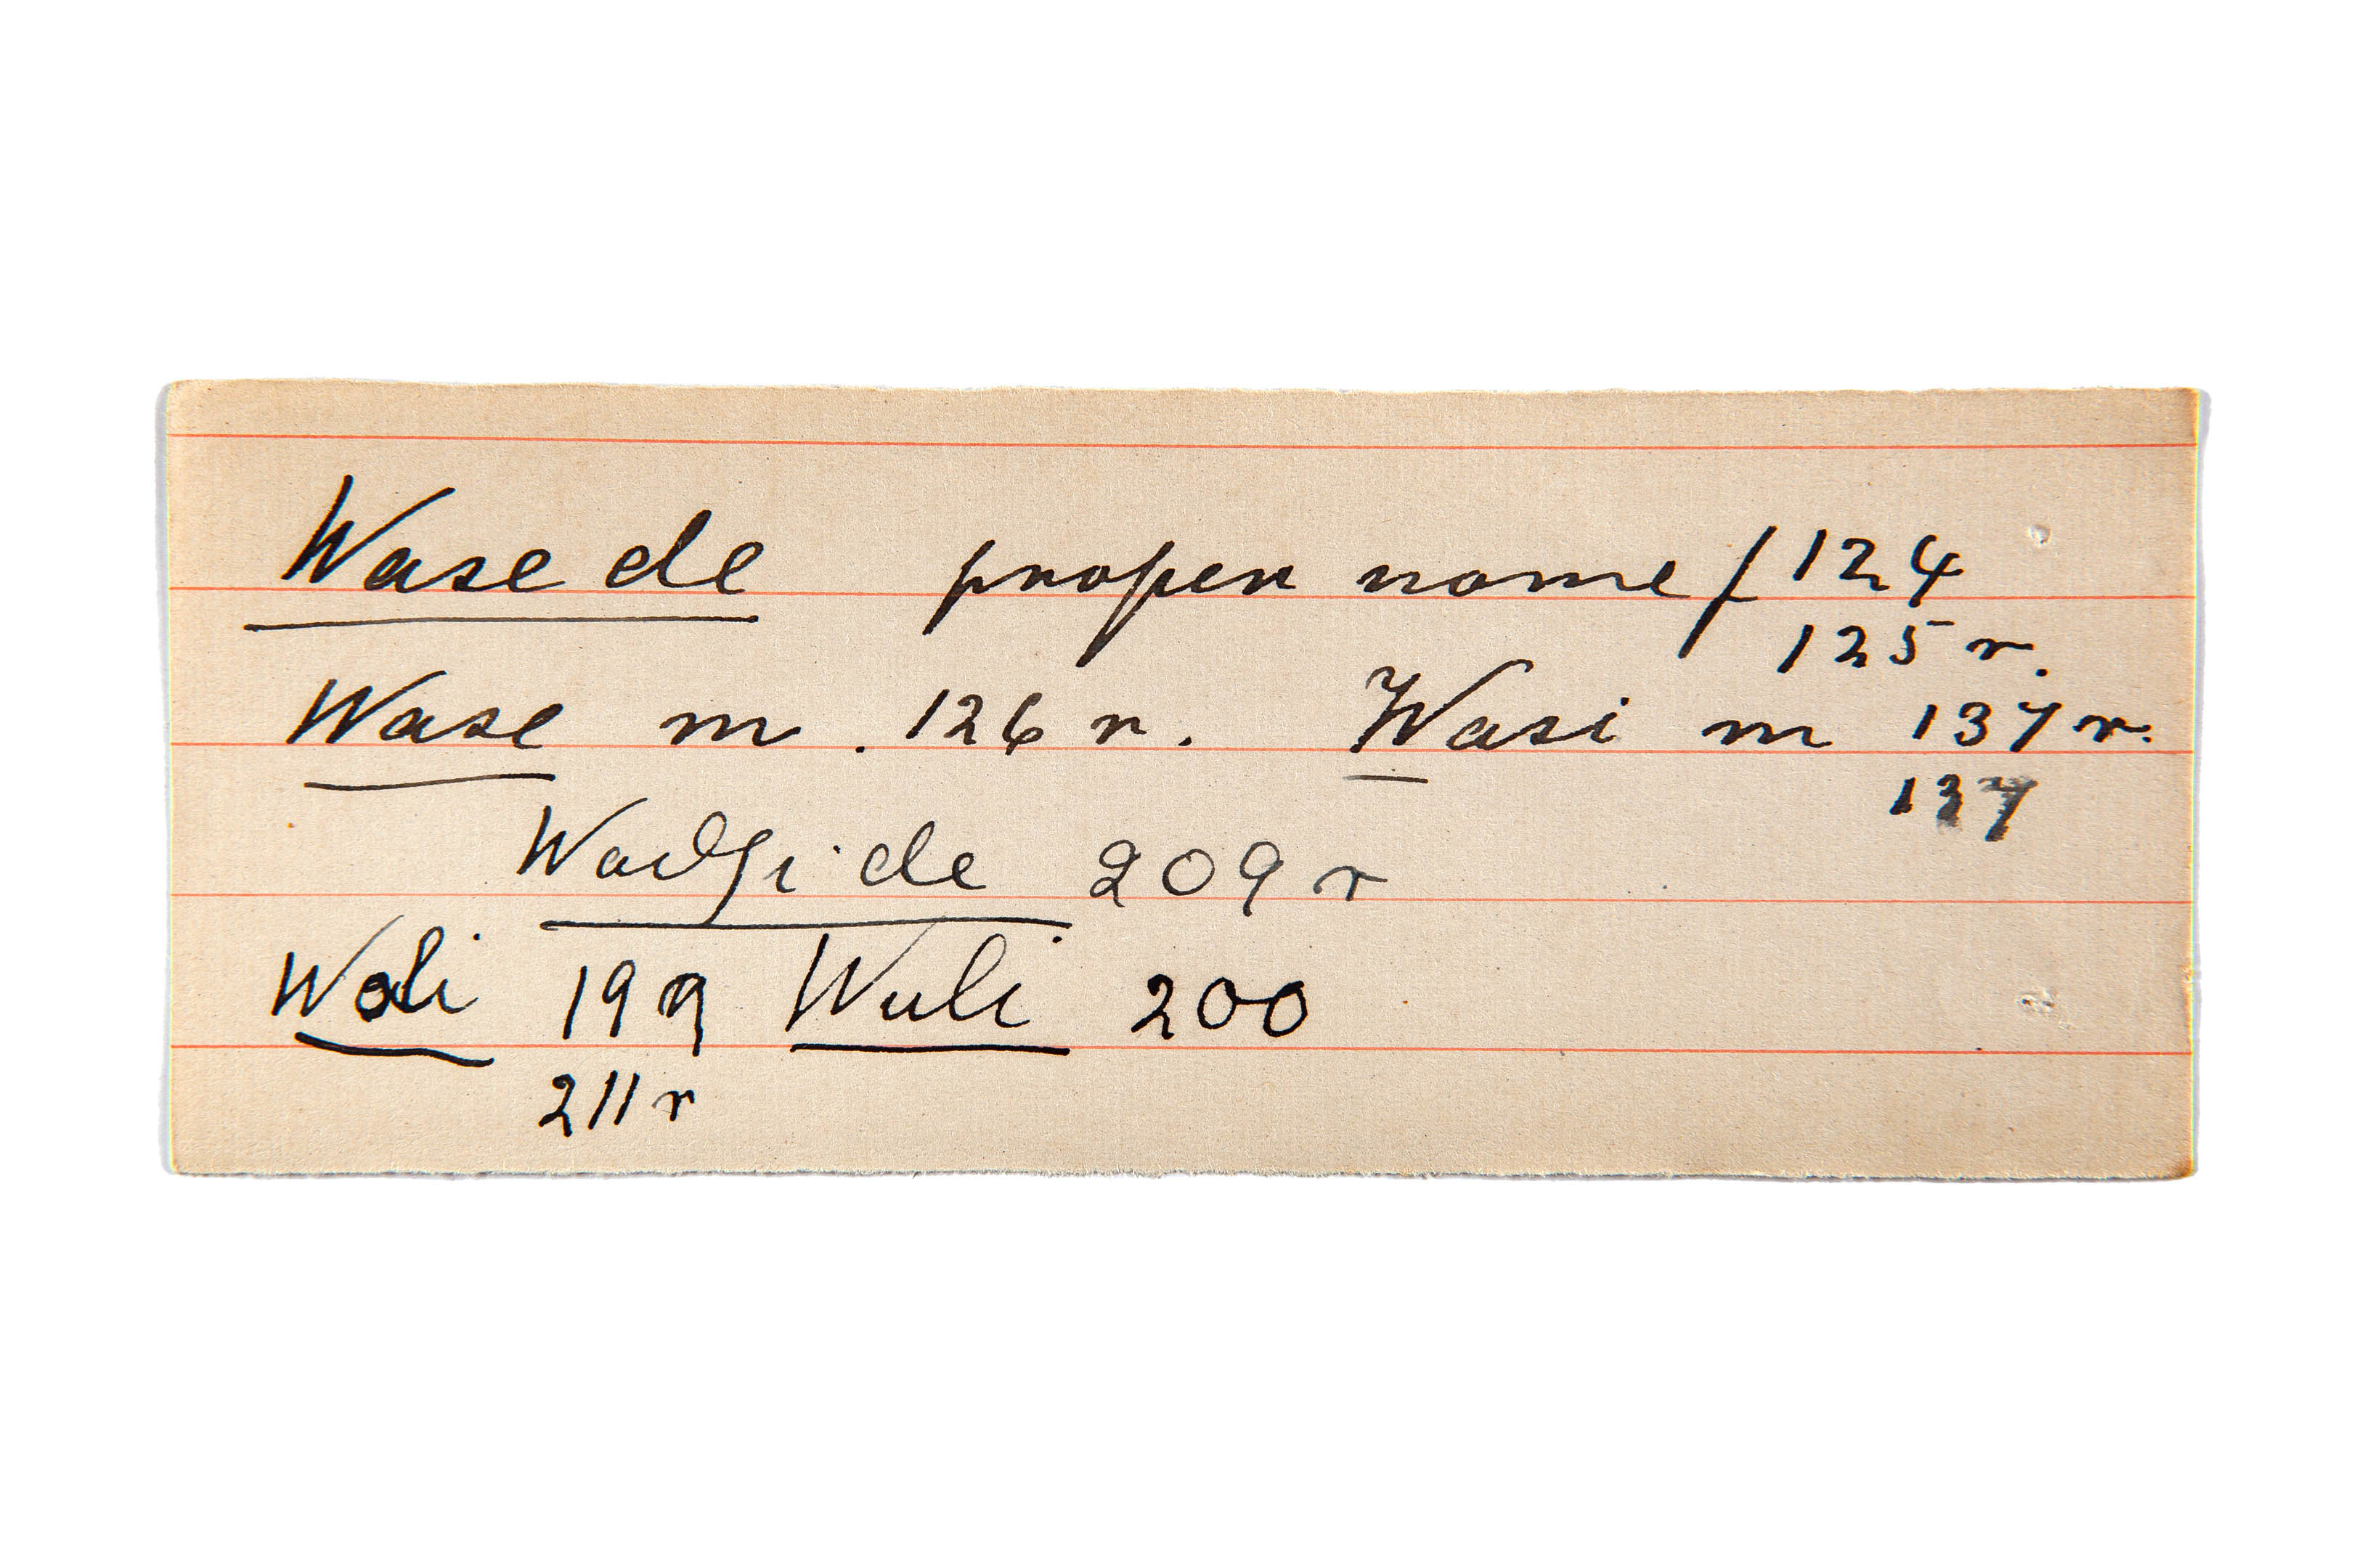 Wase de proper name f 124
125 r.
Wase m. 126 r. Wasi m 137 r.
137
209 r
Wali 199 Wuli 200
211 r